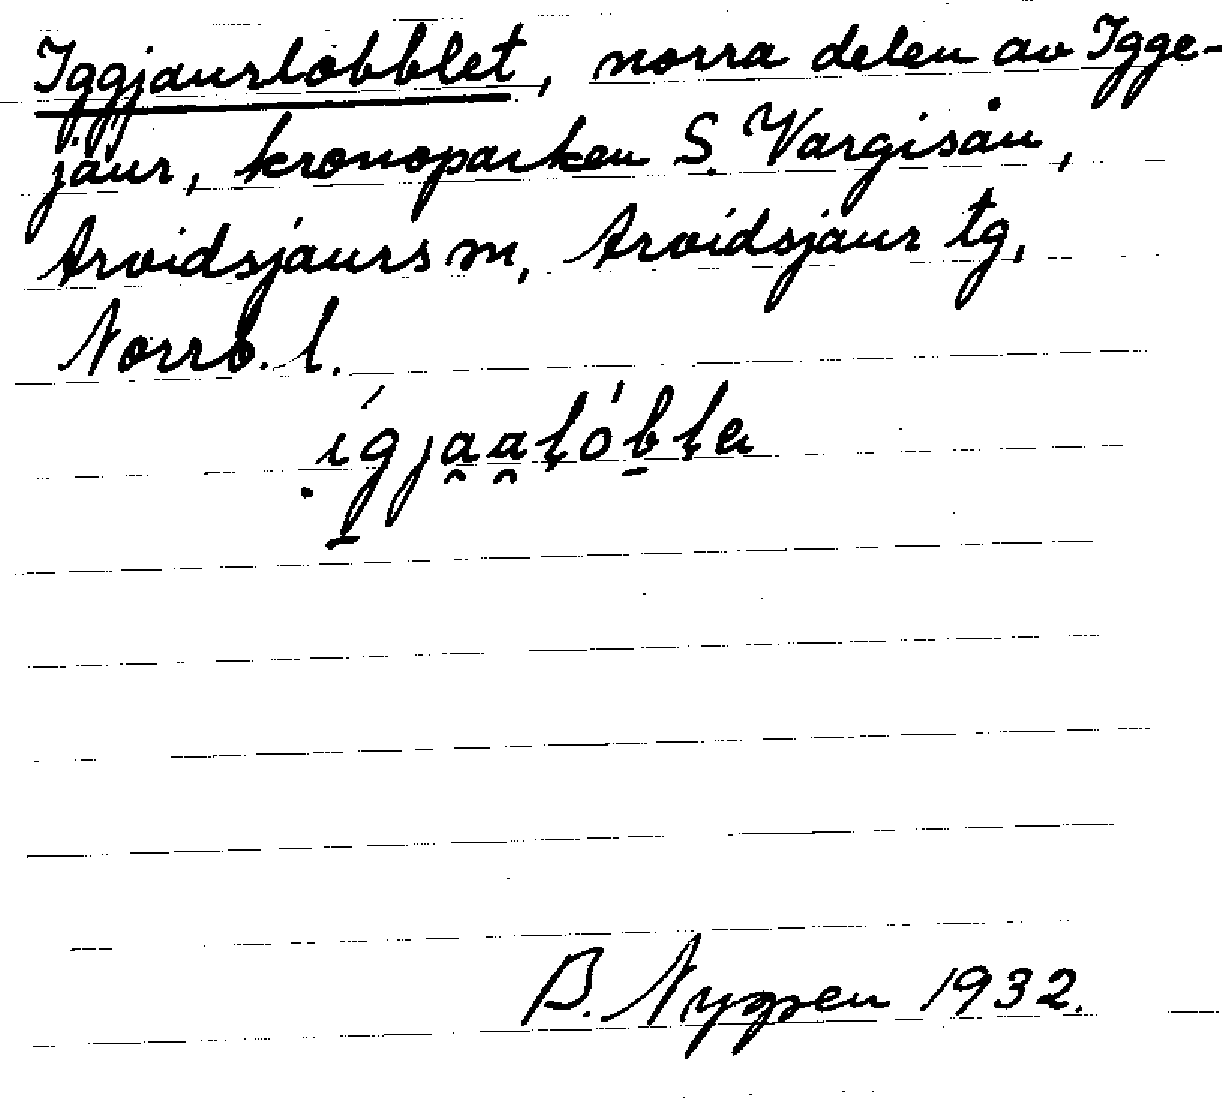 Iggjaurlobblet, norra delen av Igge-
jaur, kronoparken S. Vargisån,
Arvidsjaurs sn, Arvidsjaur tg,
Norrb. l.
B. Nygren 1932.